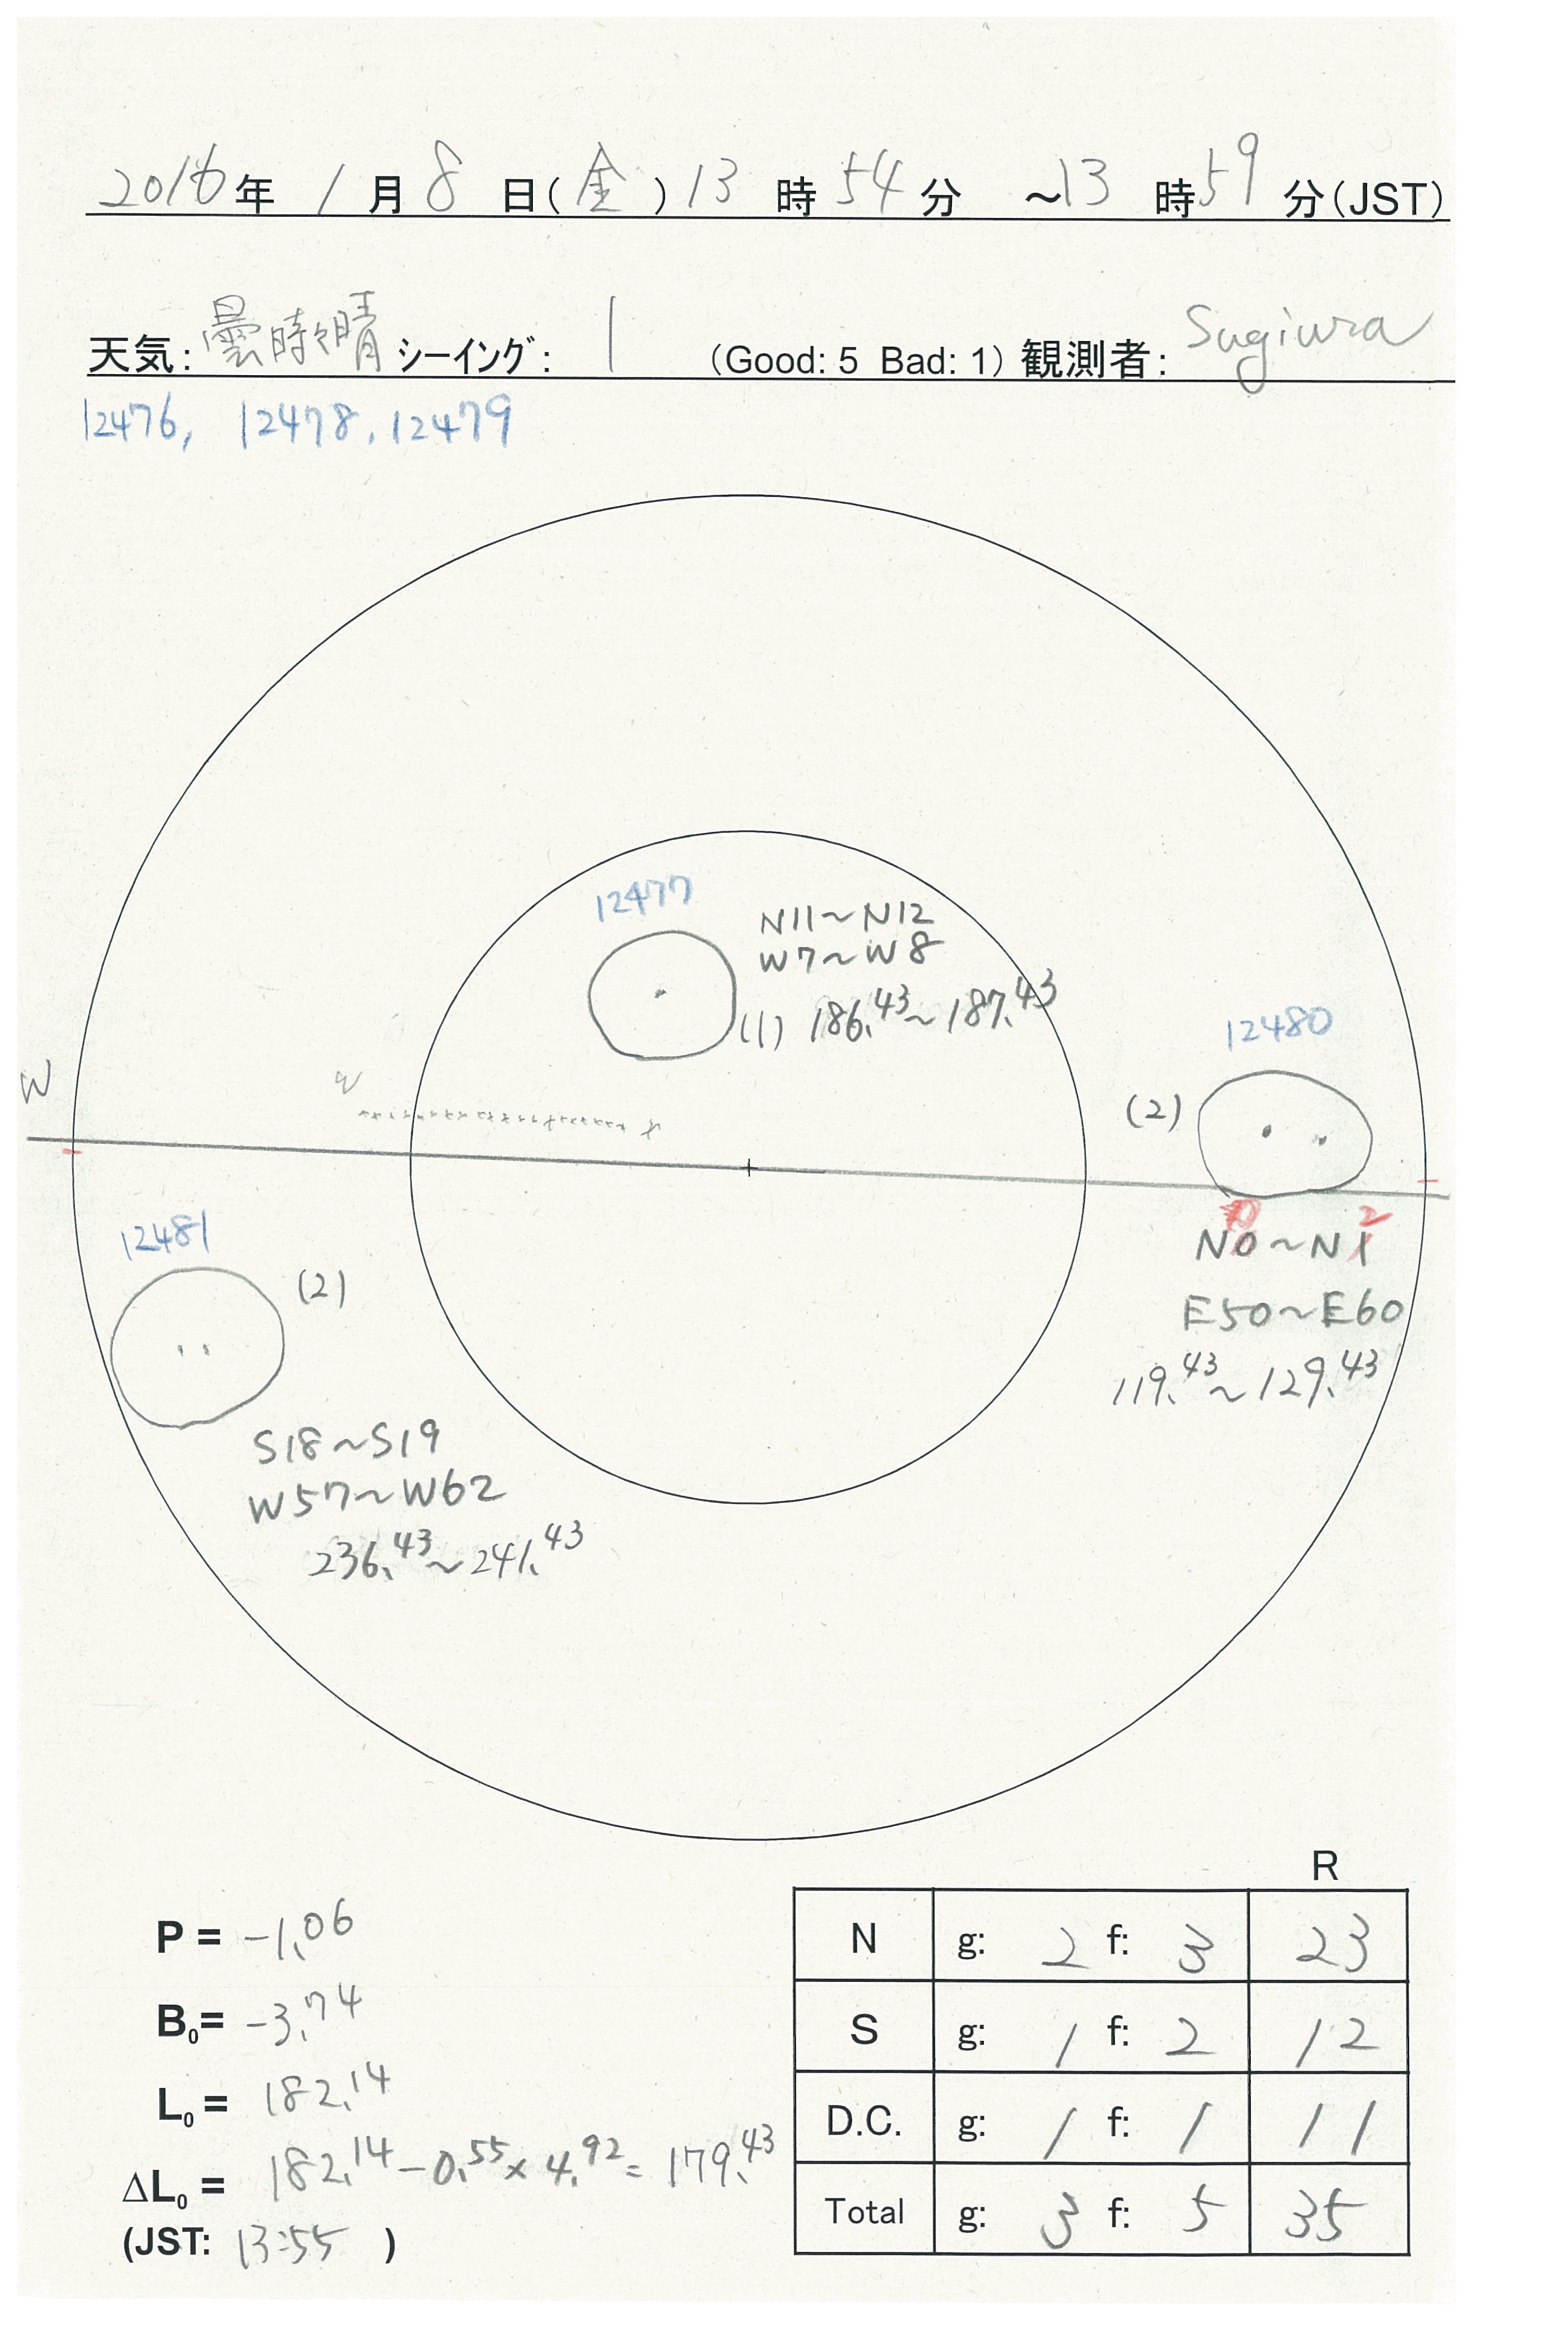 2016年 1月8日(金)13時54分 ~13時59分(JST)
天気:曇時々晴 シーイング: 1 (Good: 5 Bad: 1) 観測者: Sugiura
12476, 12478, 12479
12477
N11~N12
W7~W8
(1) 186.43~187.43
12480
(2)
W
W
N0~N2
E50~E60
119.43~129.43
12481
(2)
S18~S19
W57~W62
236.43~241.43
R
P = -1.06
B0= -3.74
L0= 182.14
ΔL0= 182.14-0.55×4.92=179.43
(JST: 13:55 )
N g: 2 f: 3 23
S g: 1 f: 2 12
D.C. g: 1 f: 1 11
Total g: 3 f: 5 35